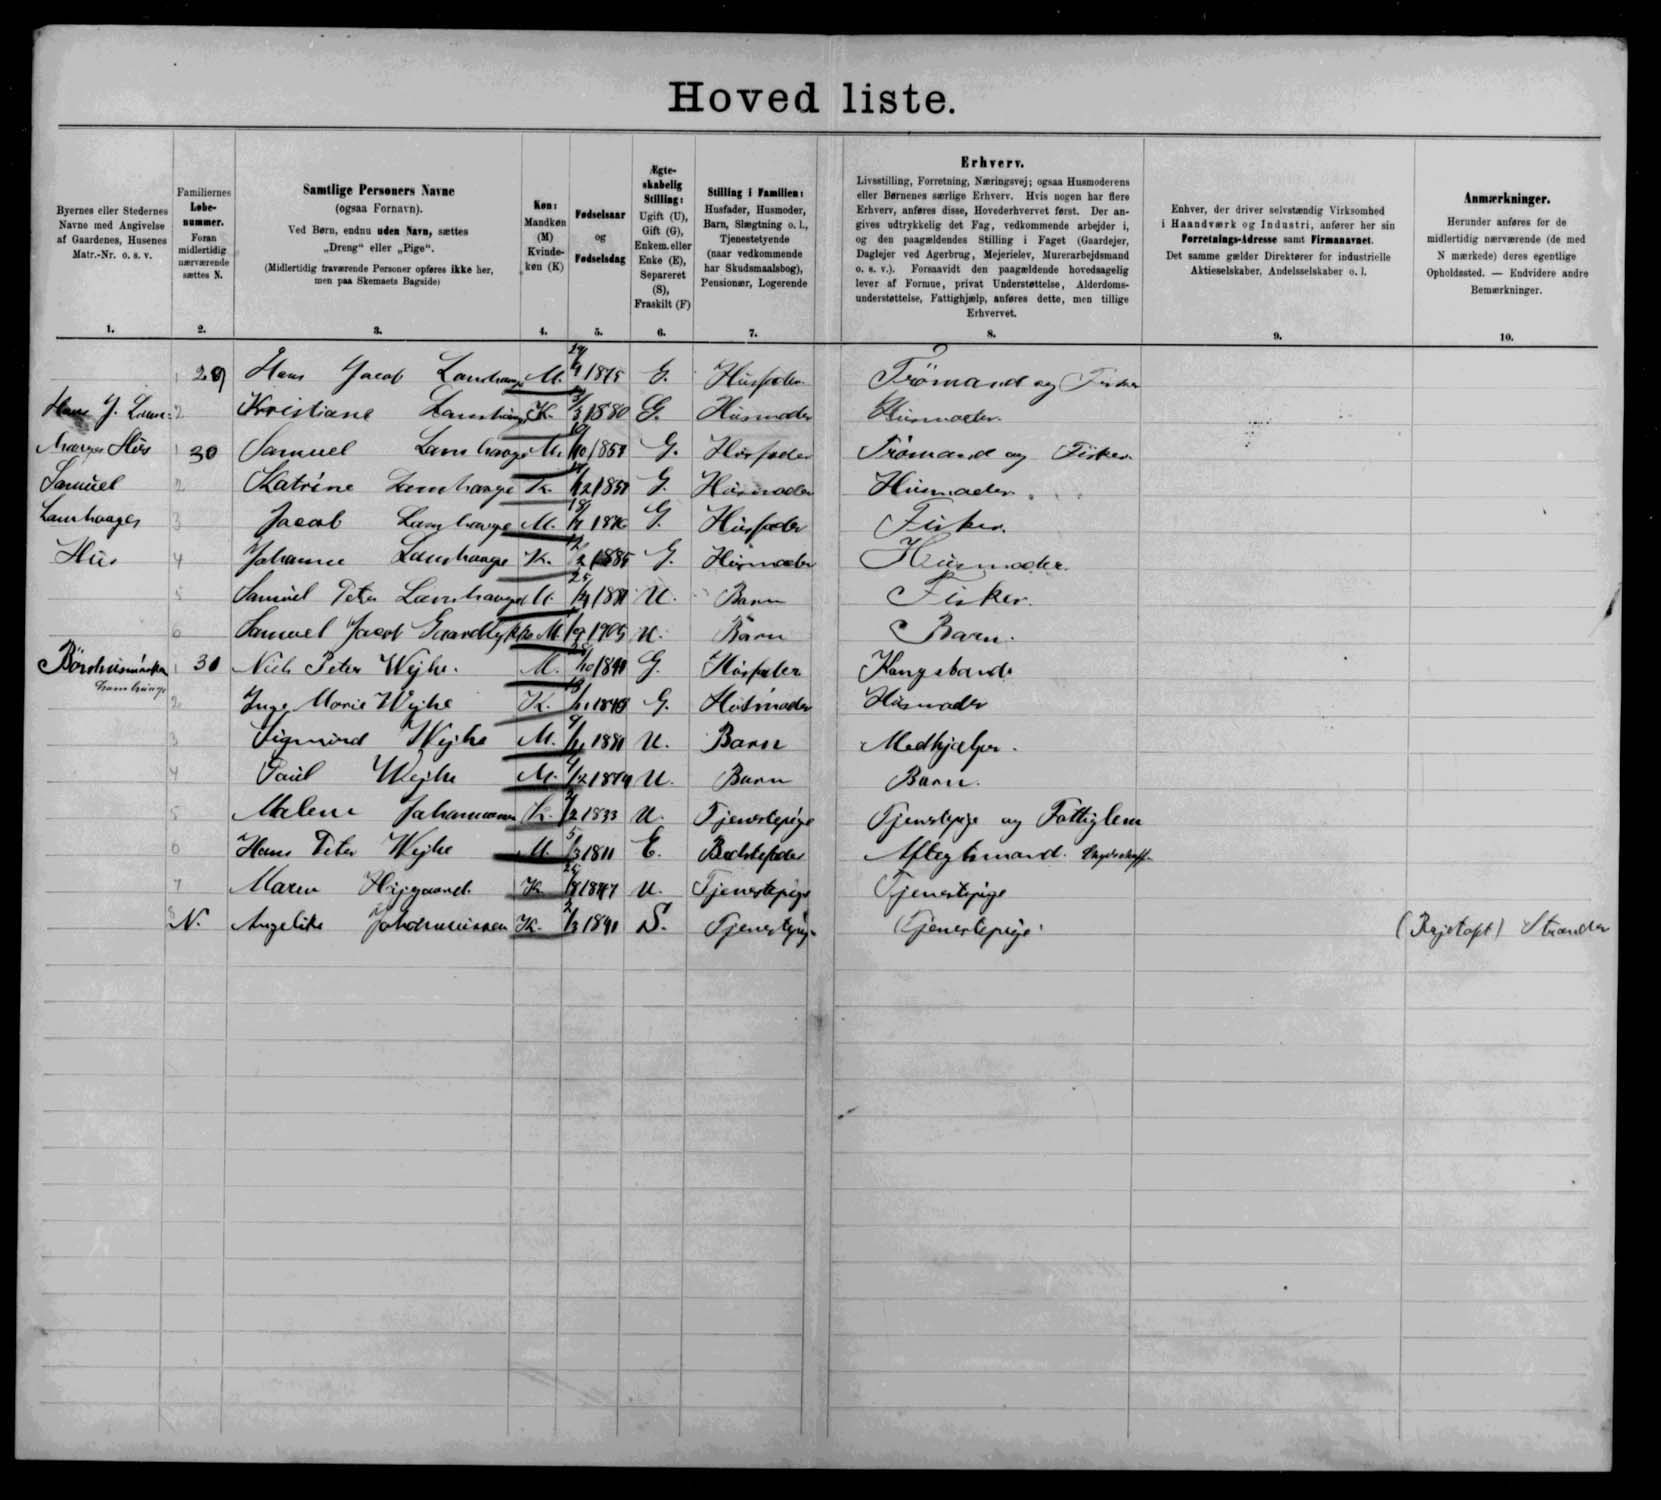 Hoved liste.
Byernes eller Stedernes
Navne med Angivelse
af Gaardenes, Husenes
Matr.-Nr. o. s. v.
1.
Familiernes
Løbe-
nummer.
Foran
midlertidig
nærværende
sættes N.
2.
Samtlige Personers Navne
(ogsaa Fornavn).
Ved Børn, endnu uden Navn, sættes
„Dreng“ eller „Pige“.
(Midlertidig fraværende Personer opføres ikke her,
men paa Skemaets Bagside)
3.
Køn:
Mandkøn
(M)
Kvinde-
køn (K)
4.
Fødselsaar
og
Fødselsdag
5.
Ægte-
skabelig
Stilling:
Ugift (U),
Gift (G),
Enkem. eller
Enke (E),
Separeret
(S),
Fraskilt (F)
6.
Stilling i Familien:
Husfader, Husmoder,
Barn, Slægtning o. l.,
Tjenestetyende
(naar vedkommende
har Skudsmaalsbog),
Pensionær, Logerende
7.
Erhverv.
Livsstilling, Forretning, Næringsvej; ogsaa Husmoderens
eller Børnenes særlige Erhverv. Hvis nogen har flere
Erhverv, anføres disse, Hovederhvervet først. Der an-
gives udtrykkelig det Fag, vedkommende arbejder i,
og den paagældendes Stilling i Faget (Gaardejer,
Daglejer ved Agerbrug, Mejerielev, Murerarbejdsmand
o. s. v.). Forsaavidt den paagældende hovedsagelig
lever af Formue, privat Understøttelse, Alderdoms-
understøttelse, Fattighjælp, anføres dette, men tillige
Erhvervet.
8.
Enhver, der driver selvstændig Virksomhed
i Haandværk og Industri, anfører her sin
Forretnings-Adresse samt Firmanavnet.
Det samme gælder Direktører for industrielle
Aktieselskaber, Andelsselskaber o. l.
9.
Anmærkninger.
Herunder anføres for de
midlertidig nærværende (de med
N mærkede) deres egentlige
Opholdssted. — Endvidere andre
Bemærkninger.
10.
1 29 Hans Jacob M. 1875 G. Husfader Trömand og Fisker
Hans J. Lam- 2 Kristiane K. 1880 G. Husmoder Husmoder.
Hus 1 30 Samuel Lamhauge M. G. Husfader Trömand og Fisker.
Samuel 2 Katrine Lamhauge K. G. Husmoder Husmoder.
Lamhauges 3 Jacob Lamhauge M. G. Husfader Fisker.
Hus 4 Johanne Lamhauge K. 1885 G. Husmoder Husmoder.
5 Samuel Peter Lamhauge M. U. Barn Fisker.
6 Samuel Jacob M. 1905 U. Barn Barn.
1 31 Niels Peter Wejhe. M. G. Husfader Kongsbonde
Lamhauge
2 Inge Marie Wejhe K. G. Husmoder Husmoder
3 Sigmund Wejhe M. U. Barn Medhjælper.
4 Paul Wejhe M. U. Barn Barn.
5 Malene K. 1833 U. Tjenestepige Tjenestepige og Fattiglem
6 Hans Peter Wejhe M. 1811 E. Bedstefader Aftegtsmand.
7 Maren K. U. Tjenestepige Tjenestepige
8 N. Angelike K. S. Tjenestepige Tjenestepige Strander